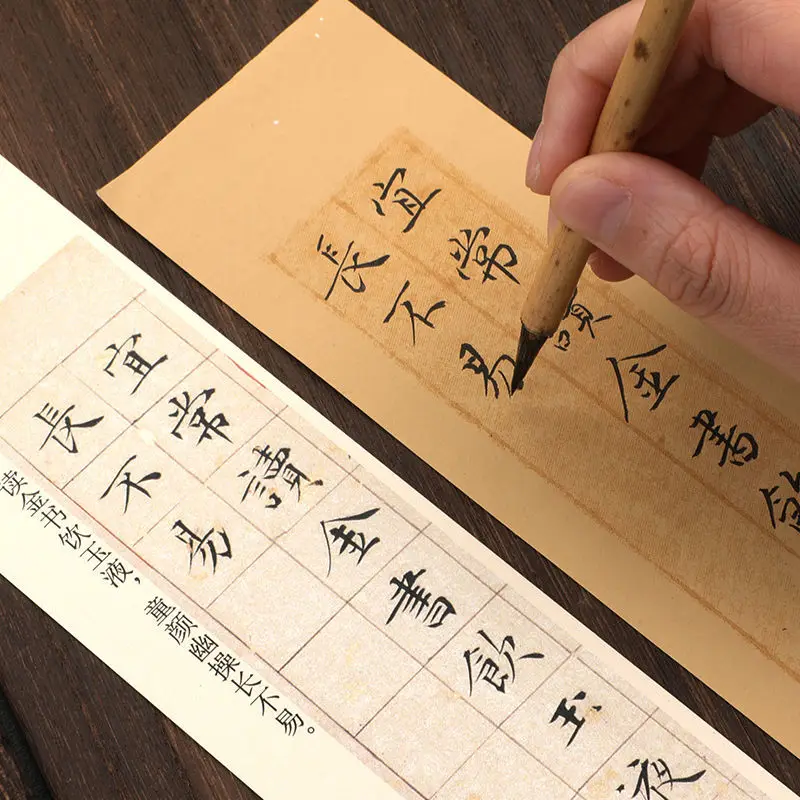 宜常讀金書飲
長不易
宜常讀金書飲玉液
長不易
读金书饮玉液，
童颜幽操长不易。